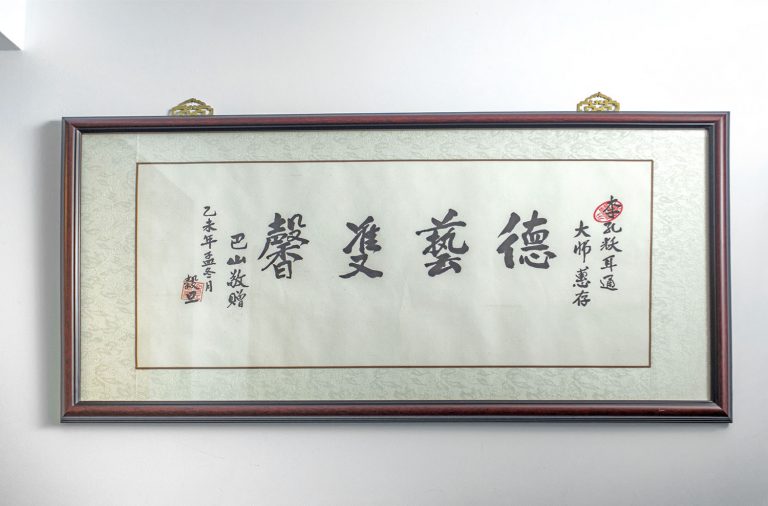 李孔耳通
大师蕙存
德藝雙馨
巴山敬赠
乙未年孟冬月
穀旦